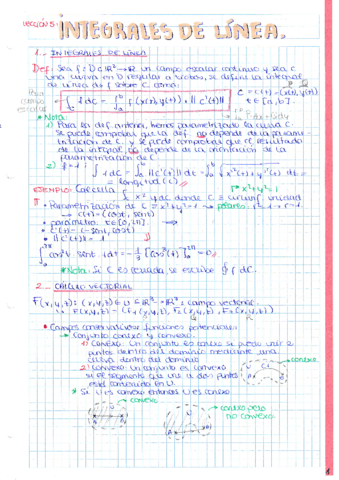 LECCIÓN 5:
INTEGRALES DE LÍNEA.
1.- INTEGRALES DE LÍNEA
Def: Sea f: D ⊆ ℝ² → ℝ un campo escalar continuo y sea C
una curva en D regular a trozos, se define la integral
de línea de f sobre C como:
Para campo escalar
∫_C f dC = ∫_a^b f(x(t), y(t)) · ||c'(t)||
C = c(t) = (x(t), y(t))
t ∈ [a, b].
* Nota:
1) Para la def. anterior, hemos parametrizado la curva C.
Se puede comprobar que la def. no depende de la parametrización
de C. Y se puede comprobar que el resultado
de la integral no depende de la orientación de la
parametrización de C.
2) f = 1 ; ∫_C dC = ∫_a^b ||c'(t)|| dt = ∫_a^b √(x'(t)² + y'(t)²) dt =
= longitud (C)
EJEMPLO: Calcula ∫_C x² y dC donde C = circunf. unidad
x² + y² = 1
* Parametrización de C = x² + y² = 1
→ c(t) = (cos t, sen t)
* parámetro: t ∈ [0, 2π]
* c'(t) = (-sen t, cos t)
* ||c'(t)|| = 1
∫_0^{2π} cos² t · sen t · 1 dt = -1/3 [cos³(t)]_0^{2π} = 0
* Nota: Si C es cerrada, se escribe ∮ f dC.
2.- CÁLCULO VECTORIAL
* Campos conservativos y funciones potenciales.
→ Conjunto conexo y convexo.
1) Conexo: Un conjunto es conexo si puedo unir 2
puntos dentro del dominio mediante una
curva dentro del dominio
conexo
2) Convexo: un conjunto es convexo
si el segmento que une a dos puntos
está contenido en U.
* Si U es convexo entonces U es conexo
convexo
conexo pero no convexo